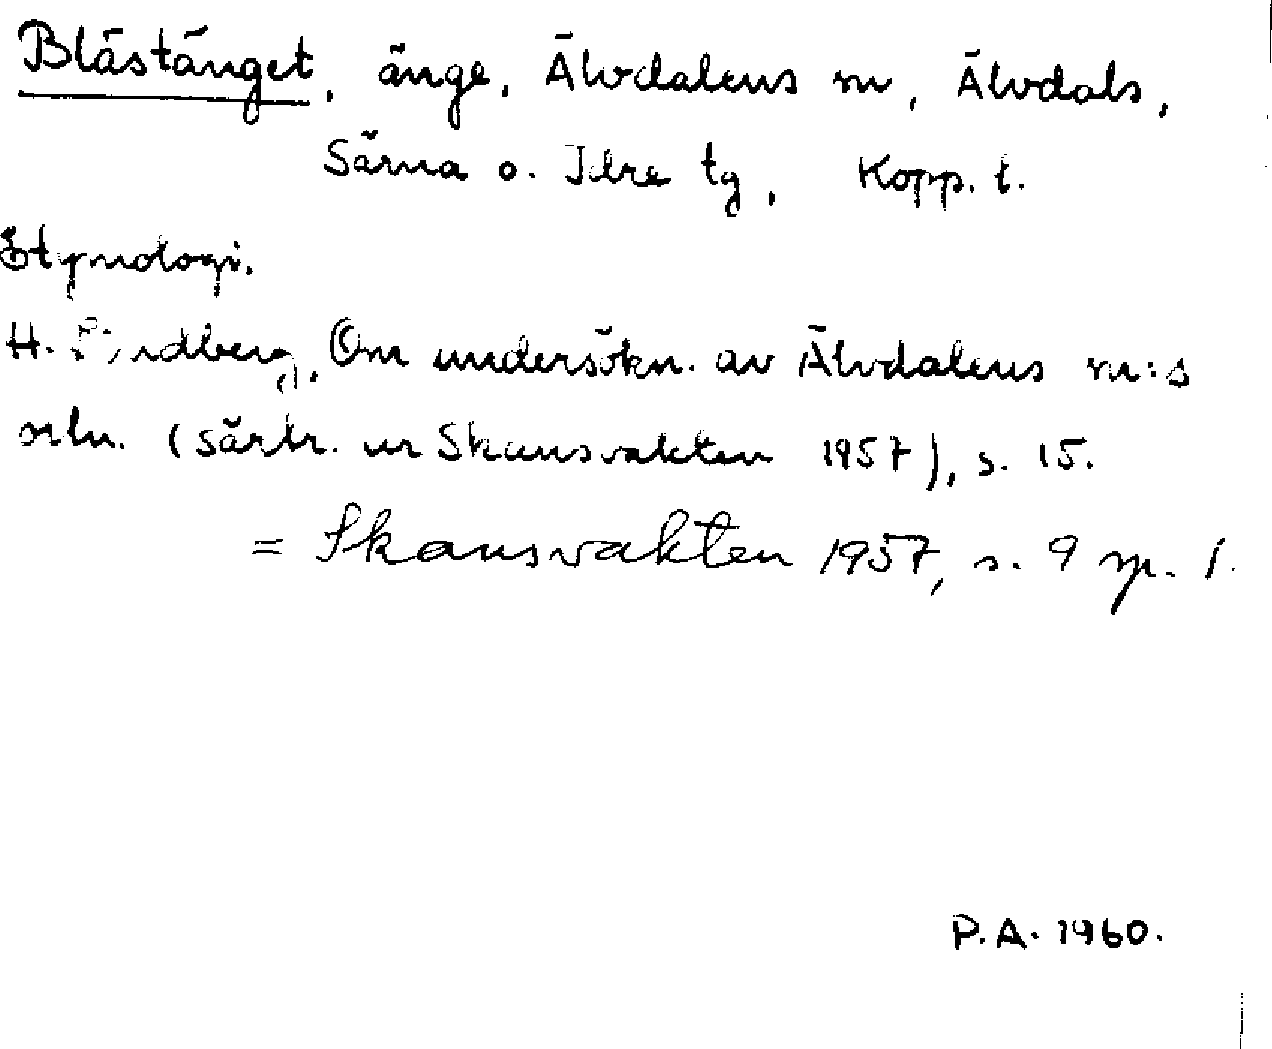 Blästänget, änge, Älvdalens sn, Älvdals,
Särna o. Idre tg, Kopp. l.
Etymologi.
H. Om undersökn. av Älvdalens sn:s
ortn. (särtr. ur Skansvakten 1957), s. 15.
= Skansvakten 1957, s. 9 sp. 1.
P.A. 1960.